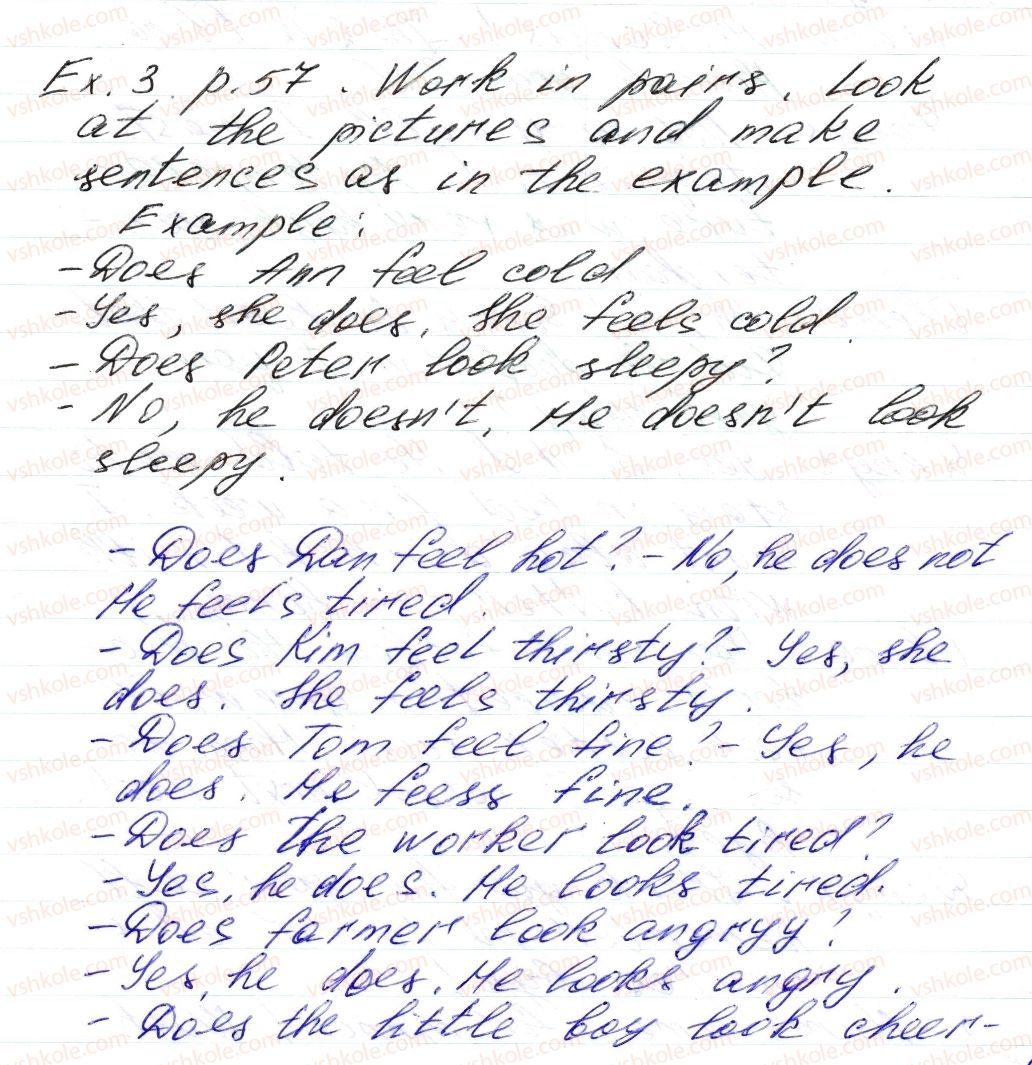 Ex. 3 p. 57. Work in pairs. Look
at the pictures and make
sentences as in the example.
Example:
- Does Ann feel cold
- Yes, she does. She feels cold.
- Does Peter look sleepy?
- No, he doesn't. He doesn't look
sleepy.
- Does Dan feel hot? - No, he does not
He feels tired.
- Does Kim feel thirsty? - Yes, she
does. She feels thirsty.
- Does Tom feel fine? - Yes, he
does. He feess fine.
- Does the worker look tired?
- Yes, he does. He looks tired.
- Does farmer look angryy?
- Yes, he does. He looks angry.
- Does the little boy look cheer-